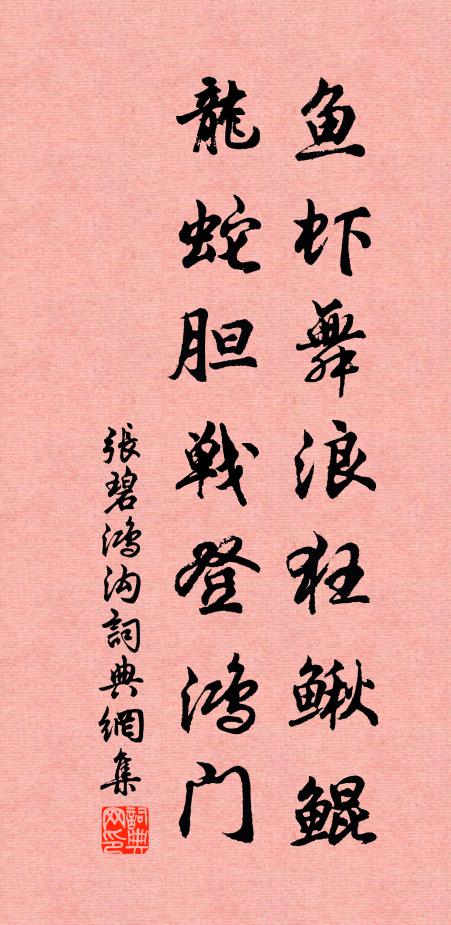 鱼虾舞浪狂鳅鲲
龍蛇胆戦登鴻门
張碧鴻沟詞典網集
詞典网印